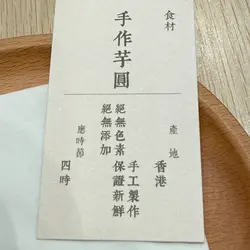 食材
手作芋圓
產地
香港
手工製作
保證新鮮
絕無色素
絕無添加
應時節
四時